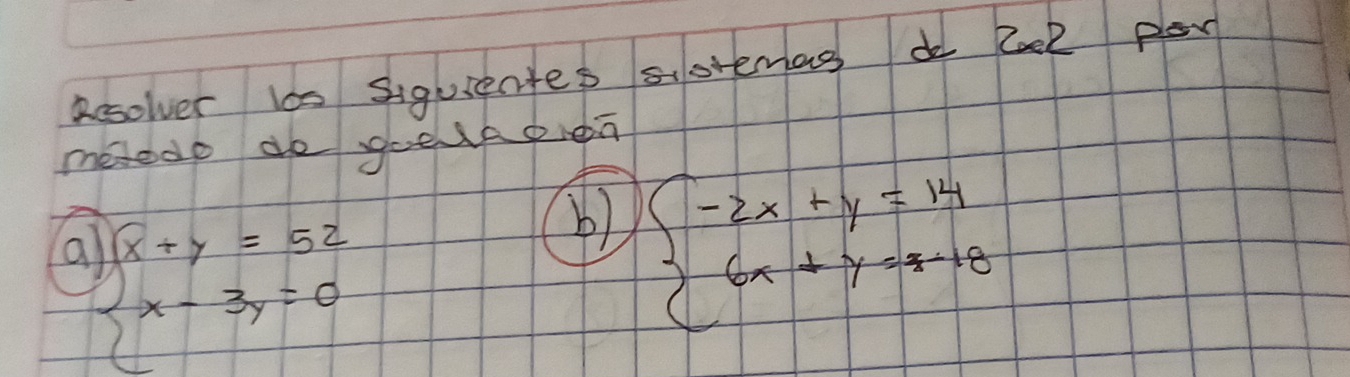 Resolver los siguientes sistemas de 2x2 por
metodo de
a) { x + y = 52
x - 3y = 0
b) { -2x + y = 14
6x + y = -18